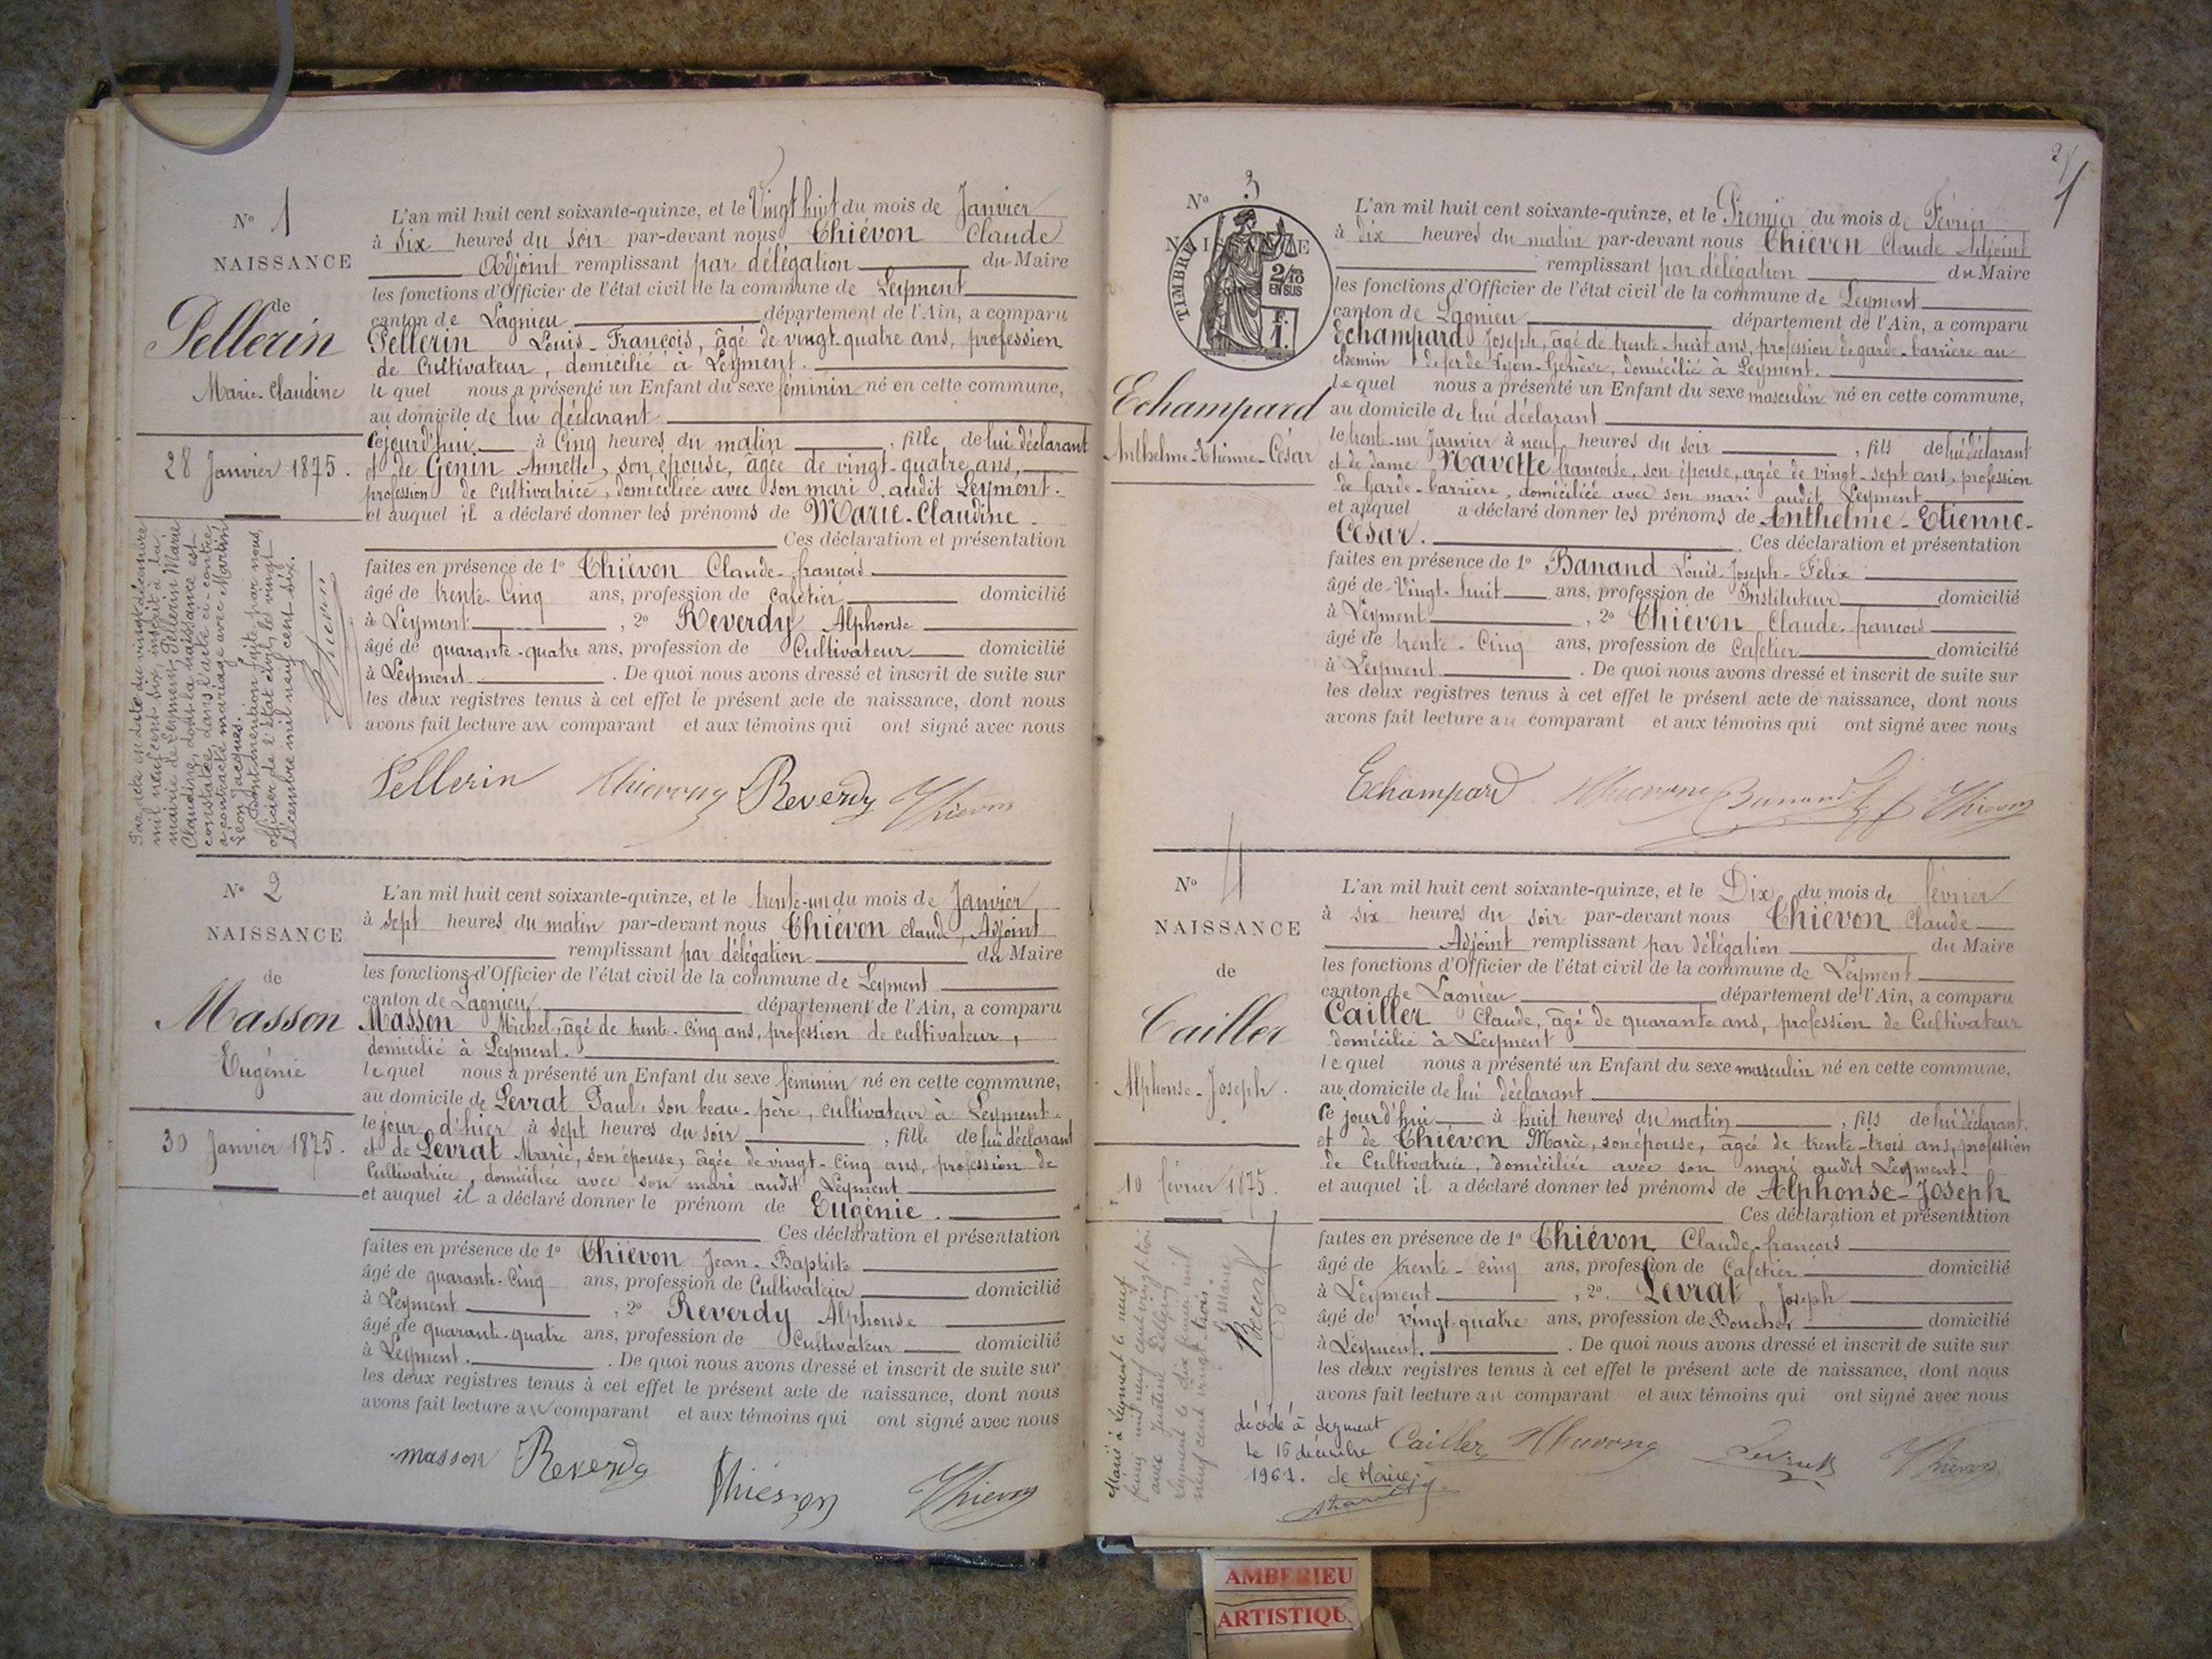 N° 1
NAISSANCE
de
Pellerin
Marie-Claudine
28 Janvier 1875.
Par acte en date du vingt décembre
mil neuf cent six, inscrit à la
mairie de Leyment, Pellerin Marie
Claudine, dont la naissance est
constatée dans l'acte ci-contre,
a contracté mariage avec Martin
Léon Jacques.
Dont mention faite par nous
officier de l'état civil, le vingt
décembre mil neuf cent six.
L'an mil huit cent soixante-quinze, et le Vingt huit du mois de Janvier
à six heures du soir par-devant nous Thiévon Claude
Adjoint remplissant par délégation du Maire
les fonctions d'Officier de l'état civil de la commune de Leyment
canton de Lagnieu département de l'Ain, a comparu
Pellerin Louis-François, âgé de vingt-quatre ans, profession
de Cultivateur, domicilié à Leyment.
le quel nous a présenté un Enfant du sexe féminin né en cette commune,
au domicile de lui déclarant
cejourd'hui à Cinq heures du matin , fille de lui déclarant
et de Genin Annette, son épouse, âgée de vingt-quatre ans,
profession de cultivatrice, domiciliée avec son mari audit Leyment.
et auquel il a déclaré donner les prénoms de Marie-Claudine.
Ces déclaration et présentation
faites en présence de 1° Thiévon Claude-françois
âgé de trente-Cinq ans, profession de cafetier domicilié
à Leyment , 2° Reverdy Alphonse
âgé de quarante-quatre ans, profession de Cultivateur domicilié
à Leyment. . De quoi nous avons dressé et inscrit de suite sur
les deux registres tenus à cet effet le présent acte de naissance, dont nous
avons fait lecture au comparant et aux témoins qui ont signé avec nous
Pellerin Thievon Reverdy Thievon
N° 2
NAISSANCE
de
Masson
Eugénie
30 Janvier 1875.
L'an mil huit cent soixante-quinze, et le trente-un du mois de Janvier
à sept heures du matin par-devant nous Thiévon Claude, Adjoint
remplissant par délégation du Maire
les fonctions d'Officier de l'état civil de la commune de Leyment
canton de Lagnieu département de l'Ain, a comparu
Masson Michel, âgé de trente-cinq ans, profession de cultivateur,
domicilié à Leyment.
le quel nous a présenté un Enfant du sexe féminin né en cette commune,
au domicile de Levrat Paul, son beau-père, cultivateur à Leyment.
le jour d'hier à sept heures du soir , fille de lui déclarant
et de Levrat Marie, son épouse, âgée de vingt-Cinq ans, profession de
Cultivatrice, domiciliée avec son mari audit Leyment
et auquel il a déclaré donner le prénom de Eugénie.
Ces déclaration et présentation
faites en présence de 1° Thiévon Jean-Baptiste
âgé de quarante-Cinq ans, profession de Cultivateur domicilié
à Leyment , 2° Reverdy Alphonse
âgé de quarante-quatre ans, profession de Cultivateur domicilié
à Leyment. . De quoi nous avons dressé et inscrit de suite sur
les deux registres tenus à cet effet le présent acte de naissance, dont nous
avons fait lecture au comparant et aux témoins qui ont signé avec nous
masson Reverdy Thiévon Thievon
N° 3
NAISSANCE
TIMBRE
2/10
EN SUS
F.
1.
Echampard
Anthelme-Etienne-César
L'an mil huit cent soixante-quinze, et le Premier du mois de Février
à dix heures du matin par-devant nous Thiévon Claude Adjoint
remplissant par délégation du Maire
les fonctions d'Officier de l'état civil de la commune de Leyment
canton de Lagnieu département de l'Ain, a comparu
Echampard Joseph, âgé de trente-huit ans, profession de garde-barrière au
chemin de fer de Lyon-Genève, domicilié à Leyment.
le quel nous a présenté un Enfant du sexe masculin né en cette commune,
au domicile de lui déclarant
le trent-un Janvier à neuf heures du soir , fils de lui déclarant
et de dame Navette françoise, son épouse, agée de vingt-sept ans, profession
de Garde-barrière, domiciliée avec son mari audit Leyment
et auquel a déclaré donner les prénoms de Anthelme-Etienne-
César. Ces déclaration et présentation
faites en présence de 1° Banand Louis-Joseph-Félix
âgé de Vingt-huit ans, profession de Instituteur domicilié
à Leyment , 2° Thiévon Claude-françois
âgé de trente-Cinq ans, profession de Cafetier domicilié
à Leyment . De quoi nous avons dressé et inscrit de suite sur
les deux registres tenus à cet effet le présent acte de naissance, dont nous
avons fait lecture au comparant et aux témoins qui ont signé avec nous
Echampard Thievon Banand Thievon
N° 4
NAISSANCE
de
Cailler
Alphonse-Joseph.
10 février 1875.
Marié à Leyment le neuf
février mil neuf cent vingt trois
avec Justine
Leyment le dix février mil
neuf cent vingt trois.
Le Maire
décédé à Leyment
le 16 décembre
1961. Le Maire
L'an mil huit cent soixante-quinze, et le Dix du mois de février
à six heures du soir par-devant nous Thiévon Claude
Adjoint remplissant par délégation du Maire
les fonctions d'Officier de l'état civil de la commune de Leyment
canton de Lagnieu département de l'Ain, a comparu
Cailler Claude, âgé de quarante ans, profession de Cultivateur
domicilié à Leyment
le quel nous a présenté un Enfant du sexe masculin né en cette commune,
au domicile de lui déclarant
ce jourd'hui à huit heures du matin , fils de lui déclarant.
et de Thiévon Marie, son épouse, âgée de trente-trois ans, profession
de Cultivatrice, domiciliée avec son mari audit Leyment.
et auquel il a déclaré donner les prénoms de Alphonse-Joseph
Ces déclaration et présentation
faites en présence de 1° Thiévon Claude-françois
âgé de trente-cinq ans, profession de Cafetier domicilié
à Leyment , 2° Levrat Joseph
âgé de vingt-quatre ans, profession de Boucher domicilié
à Leyment. . De quoi nous avons dressé et inscrit de suite sur
les deux registres tenus à cet effet le présent acte de naissance, dont nous
avons fait lecture au comparant et aux témoins qui ont signé avec nous
Cailler Thievon Levrat Thievon
AMBERIEU
ARTISTIQUE